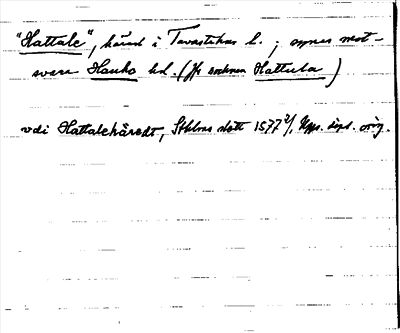 "Hattale", härad i Tavastehus l. ; synes mot-
svara Hauho hd. (Jfr socknen Hattula)
vdi Hattalehäredt, Sthlms slott 1577 2/1, Upps. dipl. orig.